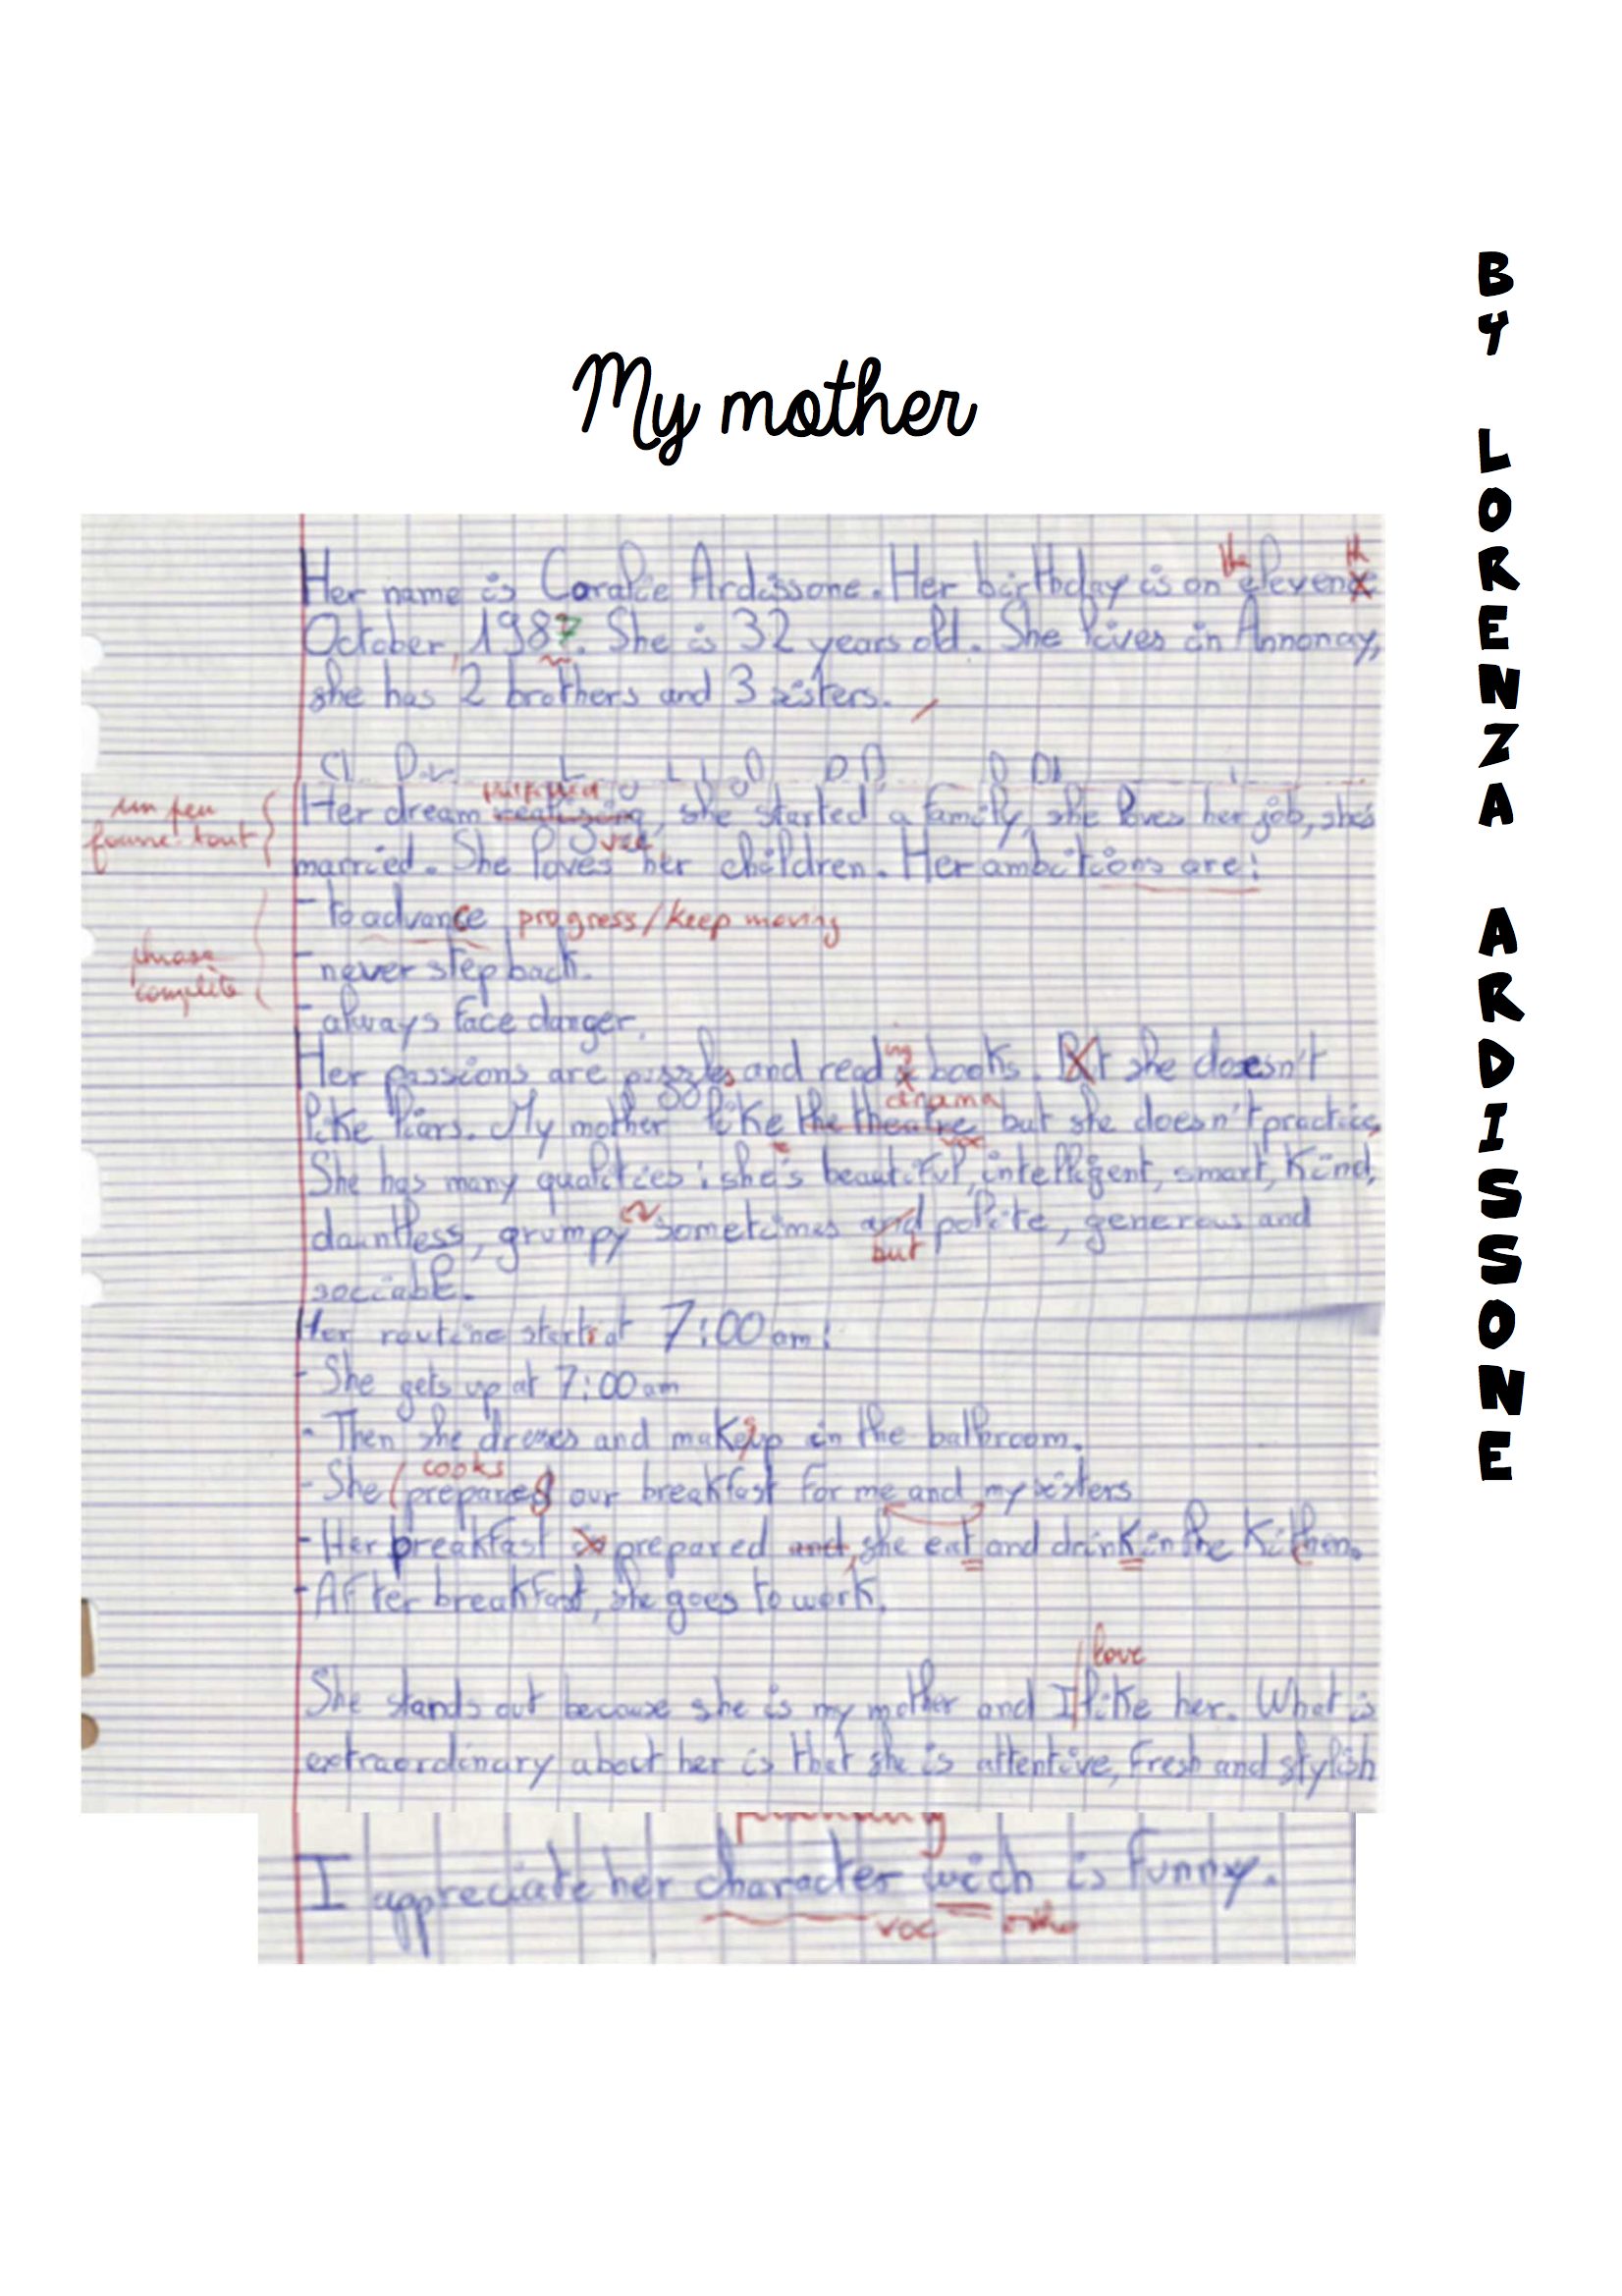 My mother
BY LORENZA ARDISSONE
the th
Her name is Coralie Ardissone. Her birthday is on elevene
October, 1987. She is 32 years old. She lives in Annonay,
she has 2 brothers and 3 sisters.
un peu
fourre-tout
Her dream realising, she started a family, she loves her job, she's
voc
married. She loves her children. Her ambitions are:
- to advance progress/keep moving
phrase
complète
- never step back.
- always face danger.
ing
Her passions are puzzles and read books. But she doesn't
drama
like liars. My mother like the theatre but she doesn't practice.
voc
She has many qualities: she's beautiful, intelligent, smart, kind,
dauntless, grumpy sometimes and polite, generous and
but
sociable.
Her routine starts at 7:00 am:
- She gets up at 7:00 am
- Then she dresses and makes up in the bathroom.
cooks
- She prepares our breakfast for me and my sisters
- Her breakfast is prepared and, she eat and drink in the kitchen.
- After breakfast, she goes to work.
love
She stands out because she is my mother and I like her. What is
extraordinary about her is that she is attentive, fresh and stylish
I appreciate her character wich is funny.
voc ortho